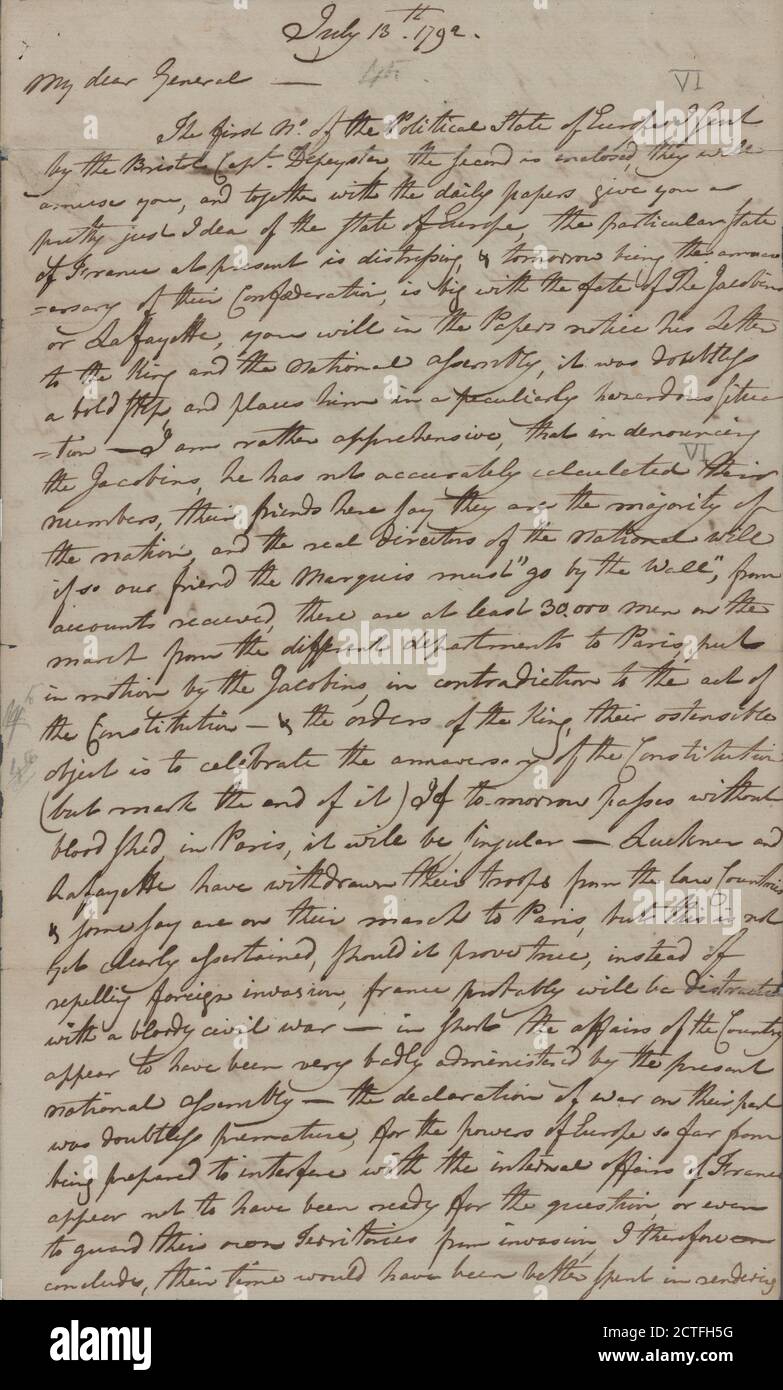 July 13th. 1792.
My dear General —
VI
The first No. of the Political State of Europe I sent
by the Bristol Capt. Depeyster the second is enclosed, they will
amuse you, and together with the daily papers give you a
pretty just Idea of the State of Europe, the particular State
of France at present is distressing, & tomorrow being the anniv
=ersary of their Confœderation, is big with the fate of The Jacobins
or LaFayette, you will in the Papers notice his Letter
to the King and the national assembly, it was doubtless
a bold step, and places him in a peculiarly hazardous situa
=tion — I am rather apprehensive, that in denouncing
VI
the Jacobins, he has not accurately calculated their
numbers, their friends here say they are the majority of
the nation, and the real directors of the national will
if so our friend the Marquis must "go by the Wall", from
accounts received, there are at least 30.000 men on the
march from the different departments to Paris, put
in motion by the Jacobins, in contradiction to the act of
the Constitution — & the orders of the King, their ostensible
object is to celebrate the anniversary of the Constitution
(but mark the end of it) If to-morrow passes without
blood shed in Paris, it will be singular — Luckner and
Lafayette have withdrawn their troops from the low Countries
& some say are on their march to Paris, but this is not
yet clearly assertained, should it prove true, instead of
repelling foreign invasion, france probably will be distracted
with a bloody civil war — in short the affairs of the Country
appear to have been very badly administered by the present
national assembly — the declaration of war on their part
was doubtless premature, for the powers of Europe so far from
being prepared to interfere with the internal affairs of France
appear not to have been ready for the question, or even
to guard their own Territories from invasion, I therefore
conclude, their time would have been better spent in rendering
alamy
Image ID: 2CTFH5G
www.alamy.com